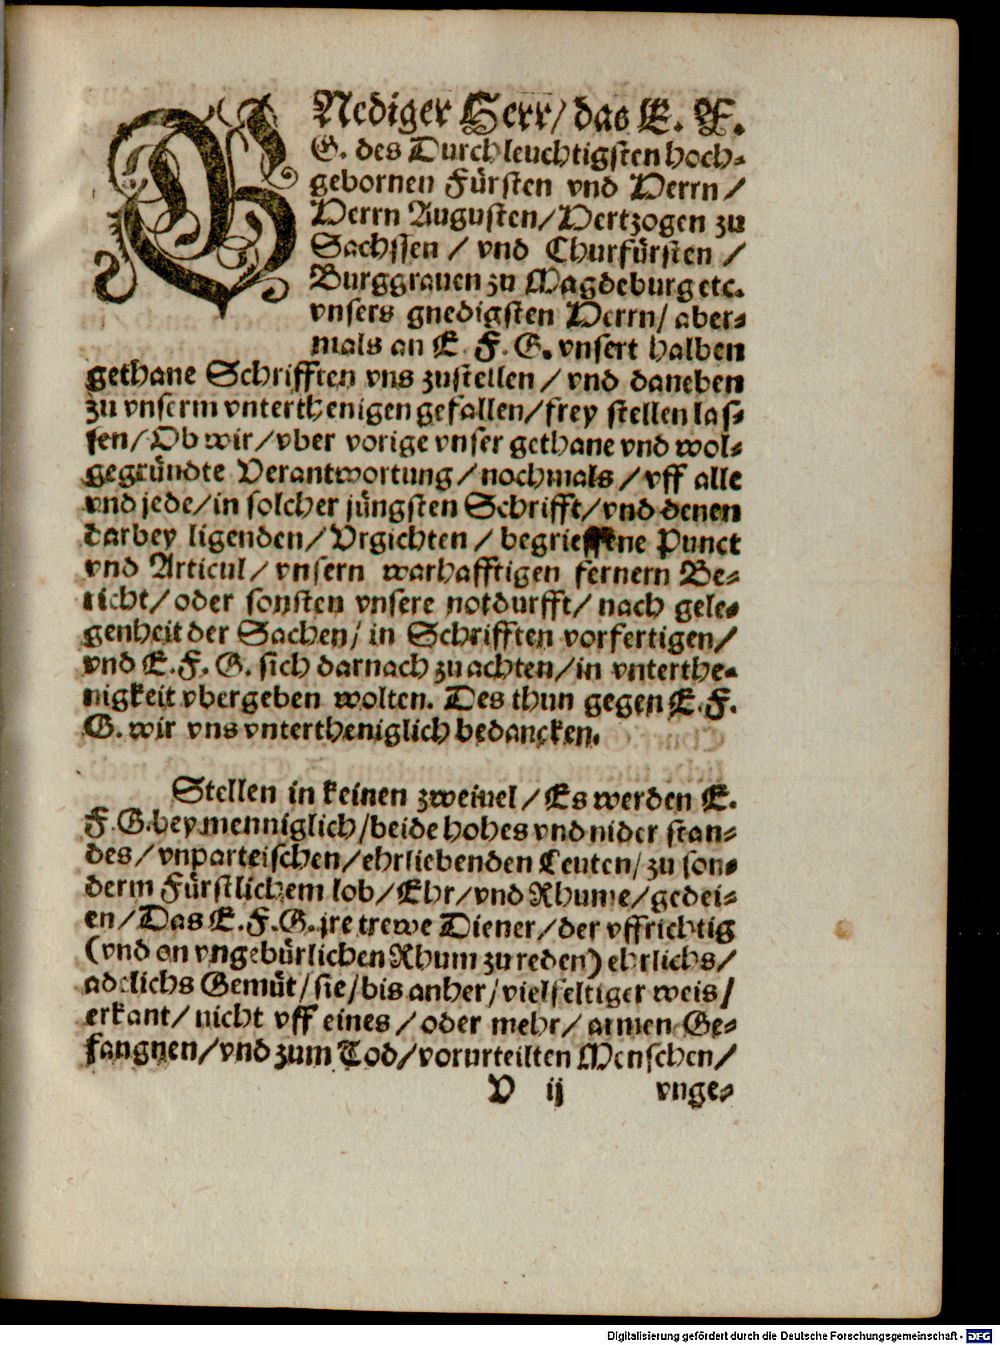 GNediger Herr/ das E. F.
G. des Durchleuchtigsten hoch-
gebornen Fürsten vnd Herrn/
Herrn Augusten/ Hertzogen zu
Sachssen / vnd Churfürsten /
Burggrauen zu Magdeburg etc.
vnsers gnedigsten Herrn/ aber-
mals an E. F. G. vnsert halben
gethane Schrifften vns zustellen / vnd daneben
zu vnserm vnterthenigen gefallen/ frey stellen las-
sen/ Ob wir/ vber vorige vnser gethane vnd wol-
gegründte Verantwortung / nochmals / vff alle
vnd jede/ in solcher jüngsten Schrifft/ vnd denen
darbey ligenden/ Vrgichten / begrieffene Punct
vnd Articul/ vnsern warhafftigen fernern Be-
richt/ oder sonsten vnsere notdurfft/ nach gele-
genheit der Sachen/ in Schrifften vorfertigen/
vnd E. F. G. sich darnach zu achten/ in vnterthe-
nigkeit vbergeben wolten. Des thun gegen E. F.
G. wir vns vntertheniglich bedancken.
Stellen in keinen zweiuel / Es werden E.
F. G. bey menniglich/ beide hohes vnd nider stan-
des/ vnparteischen/ ehrliebenden Leuten/ zu son-
derm Fürstlichem lob/ Ehr/ vnd Rhume/ gedei-
en/ Das E. F. G. jre trewe Diener/ der vffrichtig
(vnd on vngebürlichen Rhum zu reden) ehrlichs/
adelichs Gemüt/ sie/ bis anher/ vielfeltiger weis/
erkant/ nicht vff eines / oder mehr/ armen Ge-
fangnen/ vnd zum Tod/ vorurteilten Menschen/
V ij vnge-
Digitalisierung gefördert durch die Deutsche Forschungsgemeinschaft - DFG